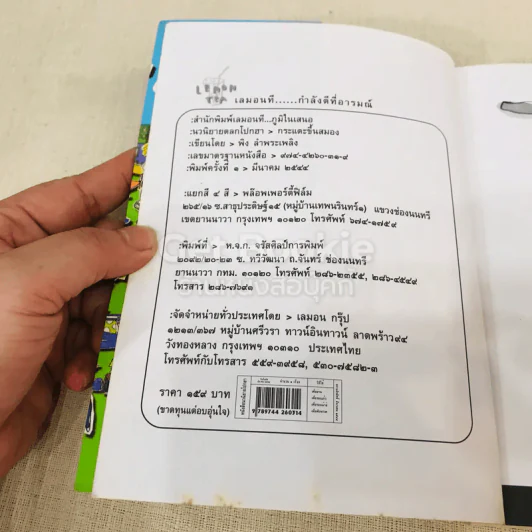 LEMON
TEA
เลมอนที......กำลังดีที่อารมณ์
:สำนักพิมพ์เลมอนที...ภูมิใจเสนอ
:นวนิยายตลกโปกฮา > กระแดะขึ้นสมอง
:เขียนโดย > พิง ลำพระเพลิง
:เลขมาตรฐานหนังสือ > ๙๗๔-๔๒๖๐-๓๑-๙
:พิมพ์ครั้งที่ ๑ > มีนาคม ๒๕๔๔
:แยกสี ๔ สี > พล๊อพเพอร์ตี้ฟิล์ม
๒๖๕/๑๖ ซ.สาธุประดิษฐ์๑๕ (หมู่บ้านเทพนรินทร์๑) แขวงช่องนนทรี
เขตยานนาวา กรุงเทพฯ ๑๐๑๒๐ โทรศัพท์ ๖๗๔-๑๗๕๙
:พิมพ์ที่ > ห.จ.ก. จรัสศิลป์การพิมพ์
๒๐๑๒/๒๐-๒๓ ซ. ทวีวัฒนา ถ.จันทร์ ช่องนนทรี
ยานนาวา กทม. ๑๐๑๒๐ โทรศัพท์ ๒๘๖-๒๓๕๕, ๒๘๖-๔๕๔๙
โทรสาร ๒๘๖-๗๖๓๑
:จัดจำหน่ายทั่วประเทศโดย > เลมอน กรุ๊ป
๑๒๑๓/๓๖๗ หมู่บ้านศรีวรา ทาวน์อินทาวน์ ลาดพร้าว๙๔
วังทองหลาง กรุงเทพฯ ๑๐๓๑๐ ประเทศไทย
โทรศัพท์กับโทรสาร ๕๕๙-๓๙๕๘, ๕๓๐-๗๕๘๒-๓
ราคา ๑๕๙ บาท
(ขาดทุนแต่อบอุ่นใจ)
9789744 260314